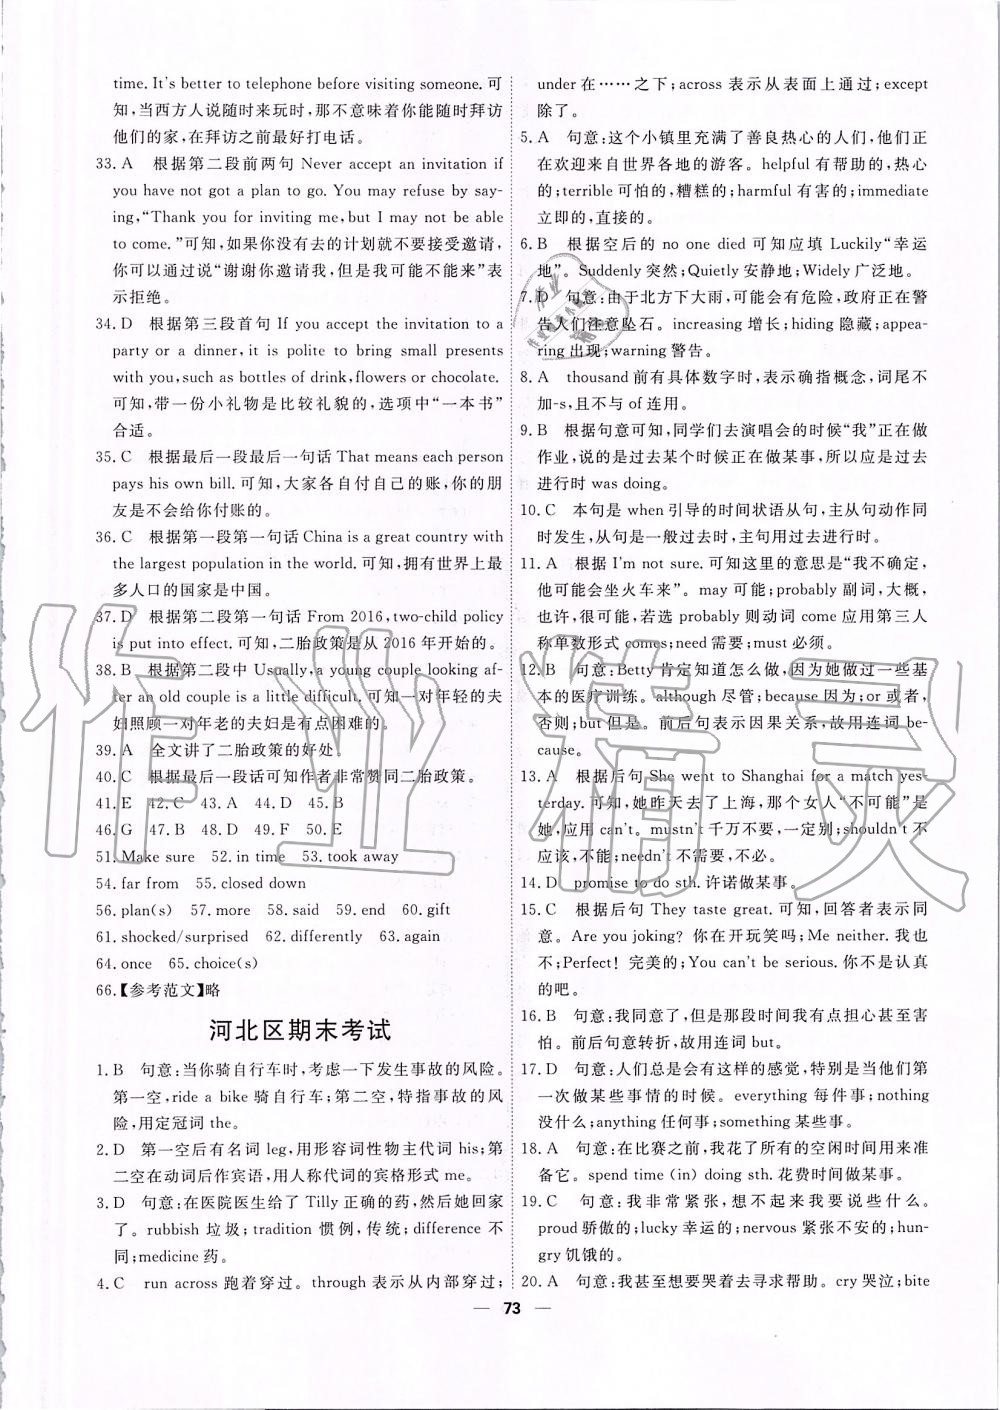 time. It's better to telephone before visiting someone. 可
知,当西方人说随时来玩时,那不意味着你能随时拜访
他们的家,在拜访之前最好打电话。
33. A 根据第二段前两句 Never accept an invitation if
you have not got a plan to go. You may refuse by say-
ing,“Thank you for inviting me, but I may not be able
to come.”可知,如果你没有去的计划就不要接受邀请,
你可以通过说“谢谢你邀请我,但是我可能不能来”表
示拒绝。
34. D 根据第三段首句 If you accept the invitation to a
party or a dinner, it is polite to bring small presents
with you, such as bottles of drink, flowers or chocolate.
可知,带一份小礼物是比较礼貌的,选项中“一本书”
合适。
35. C 根据最后一段最后一句话 That means each person
pays his own bill. 可知,大家各自付自己的账,你的朋
友是不会给你付账的。
36. C 根据第一段第一句话 China is a great country with
the largest population in the world. 可知,拥有世界上最
多人口的国家是中国。
37. D 根据第二段第一句话 From 2016, two-child policy
is put into effect. 可知,二胎政策是从 2016 年开始的。
38. B 根据第二段中 Usually, a young couple looking af-
ter an old couple is a little difficult. 可知一对年轻的夫
妇照顾一对年老的夫妇是有点困难的。
39. A 全文讲了二胎政策的好处。
40. C 根据最后一段话可知作者非常赞同二胎政策。
41. E 42. C 43. A 44. D 45. B
46. G 47. B 48. D 49. F 50. E
51. Make sure 52. in time 53. took away
54. far from 55. closed down
56. plan(s) 57. more 58. said 59. end 60. gift
61. shocked/surprised 62. differently 63. again
64. once 65. choice(s)
66.【参考范文】略
河北区期末考试
1. B 句意:当你骑自行车时,考虑一下发生事故的风险。
第一空,ride a bike 骑自行车;第二空,特指事故的风
险,用定冠词 the。
2. D 第一空后有名词 leg,用形容词性物主代词 his;第
二空在动词后作宾语,用人称代词的宾格形式 me。
3. D 句意:在医院医生给了 Tilly 正确的药,然后她回家
了。rubbish 垃圾;tradition 惯例,传统;difference 不
同;medicine 药。
4. C run across 跑着穿过。through 表示从内部穿过;
under 在……之下;across 表示从表面上通过;except
除了。
5. A 句意:这个小镇里充满了善良热心的人们,他们正
在欢迎来自世界各地的游客。helpful 有帮助的,热心
的;terrible 可怕的,糟糕的;harmful 有害的;immediate
立即的,直接的。
6. B 根据空后的 no one died 可知应填 Luckily“幸运
地”。Suddenly 突然;Quietly 安静地;Widely 广泛地。
7. D 句意:由于北方下大雨,可能会有危险,政府正在警
告人们注意坠石。increasing 增长;hiding 隐藏;appea-
ring 出现;warning 警告。
8. A thousand 前有具体数字时,表示确指概念,词尾不
加-s,且不与 of 连用。
9. B 根据句意可知,同学们去演唱会的时候“我”正在做
作业,说的是过去某个时候正在做某事,所以应是过去
进行时 was doing。
10. C 本句是 when 引导的时间状语从句,主从句动作同
时发生,从句是一般过去时,主句用过去进行时。
11. A 根据 I'm not sure. 可知这里的意思是“我不确定,
他可能会坐火车来”。may 可能;probably 副词,大概,
也许,很可能,若选 probably 则动词 come 应用第三人
称单数形式 comes;need 需要;must 必须。
12. B 句意:Betty 肯定知道怎么做,因为她做过一些基
本的医疗训练。although 尽管;because 因为;or 或者,
否则;but 但是。前后句表示因果关系,故用连词 be-
cause。
13. A 根据后句 She went to Shanghai for a match yes-
terday. 可知,她昨天去了上海,那个女人“不可能”是
她,应用 can't。mustn't 千万不要,一定别;shouldn't 不
应该,不能;needn't 不需要,不必。
14. D promise to do sth. 许诺做某事。
15. C 根据后句 They taste great. 可知,回答者表示同
意。Are you joking? 你在开玩笑吗;Me neither. 我也
不;Perfect! 完美的;You can't be serious. 你不是认真
的吧。
16. B 句意:我同意了,但是那段时间我有点担心甚至害
怕。前后句意转折,故用连词 but。
17. D 句意:人们总是会有这样的感觉,特别是当他们第
一次做某些事情的时候。everything 每件事;nothing
没什么;anything 任何事;something 某些事。
18. A 句意:在比赛之前,我花了所有的空闲时间用来准
备它。spend time (in) doing sth. 花费时间做某事。
19. C 句意:我非常紧张,想不起来我要说些什么。
proud 骄傲的;lucky 幸运的;nervous 紧张不安的;hun-
gry 饥饿的。
20. A 句意:我甚至想要哭着去寻求帮助。cry 哭泣;bite
— 73 —
作业精灵